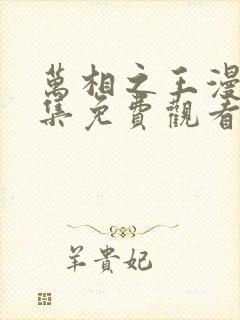 萬相之王漫
集免費觀看
羊貴妃